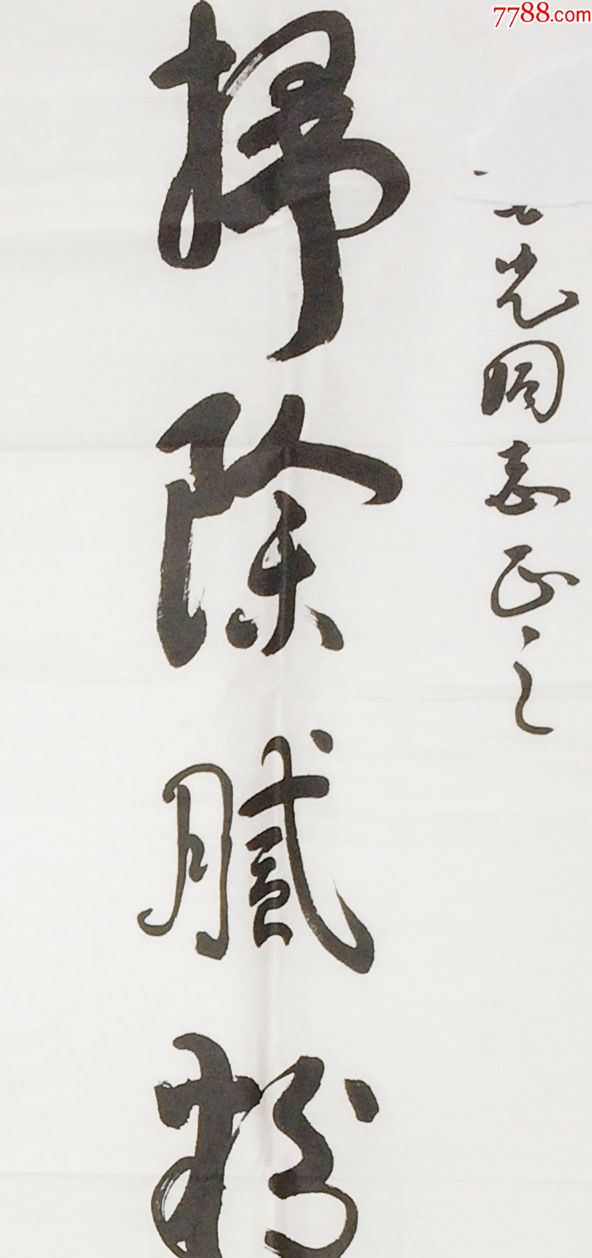 7788.com
光同志正之
掃除膩粉